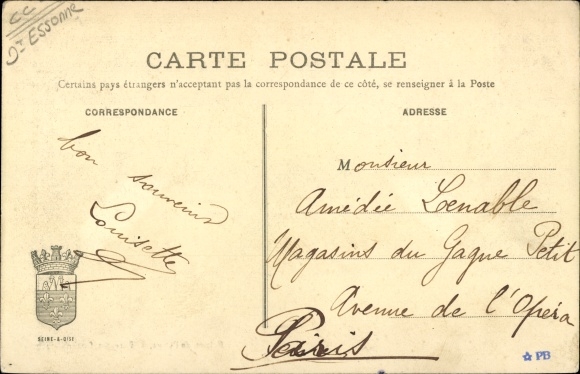 CC
Dt ESSONNE
CARTE POSTALE
Certains pays étrangers n'acceptant pas la correspondance de ce côté, se renseigner à la Poste
CORRESPONDANCE
bon souvenir
Louisette
SEINE-&-OISE
ADRESSE
Monsieur
Amédée Lenable
Magasins du Gagne Petit
Avenue de l'Opéra
Paris
PB